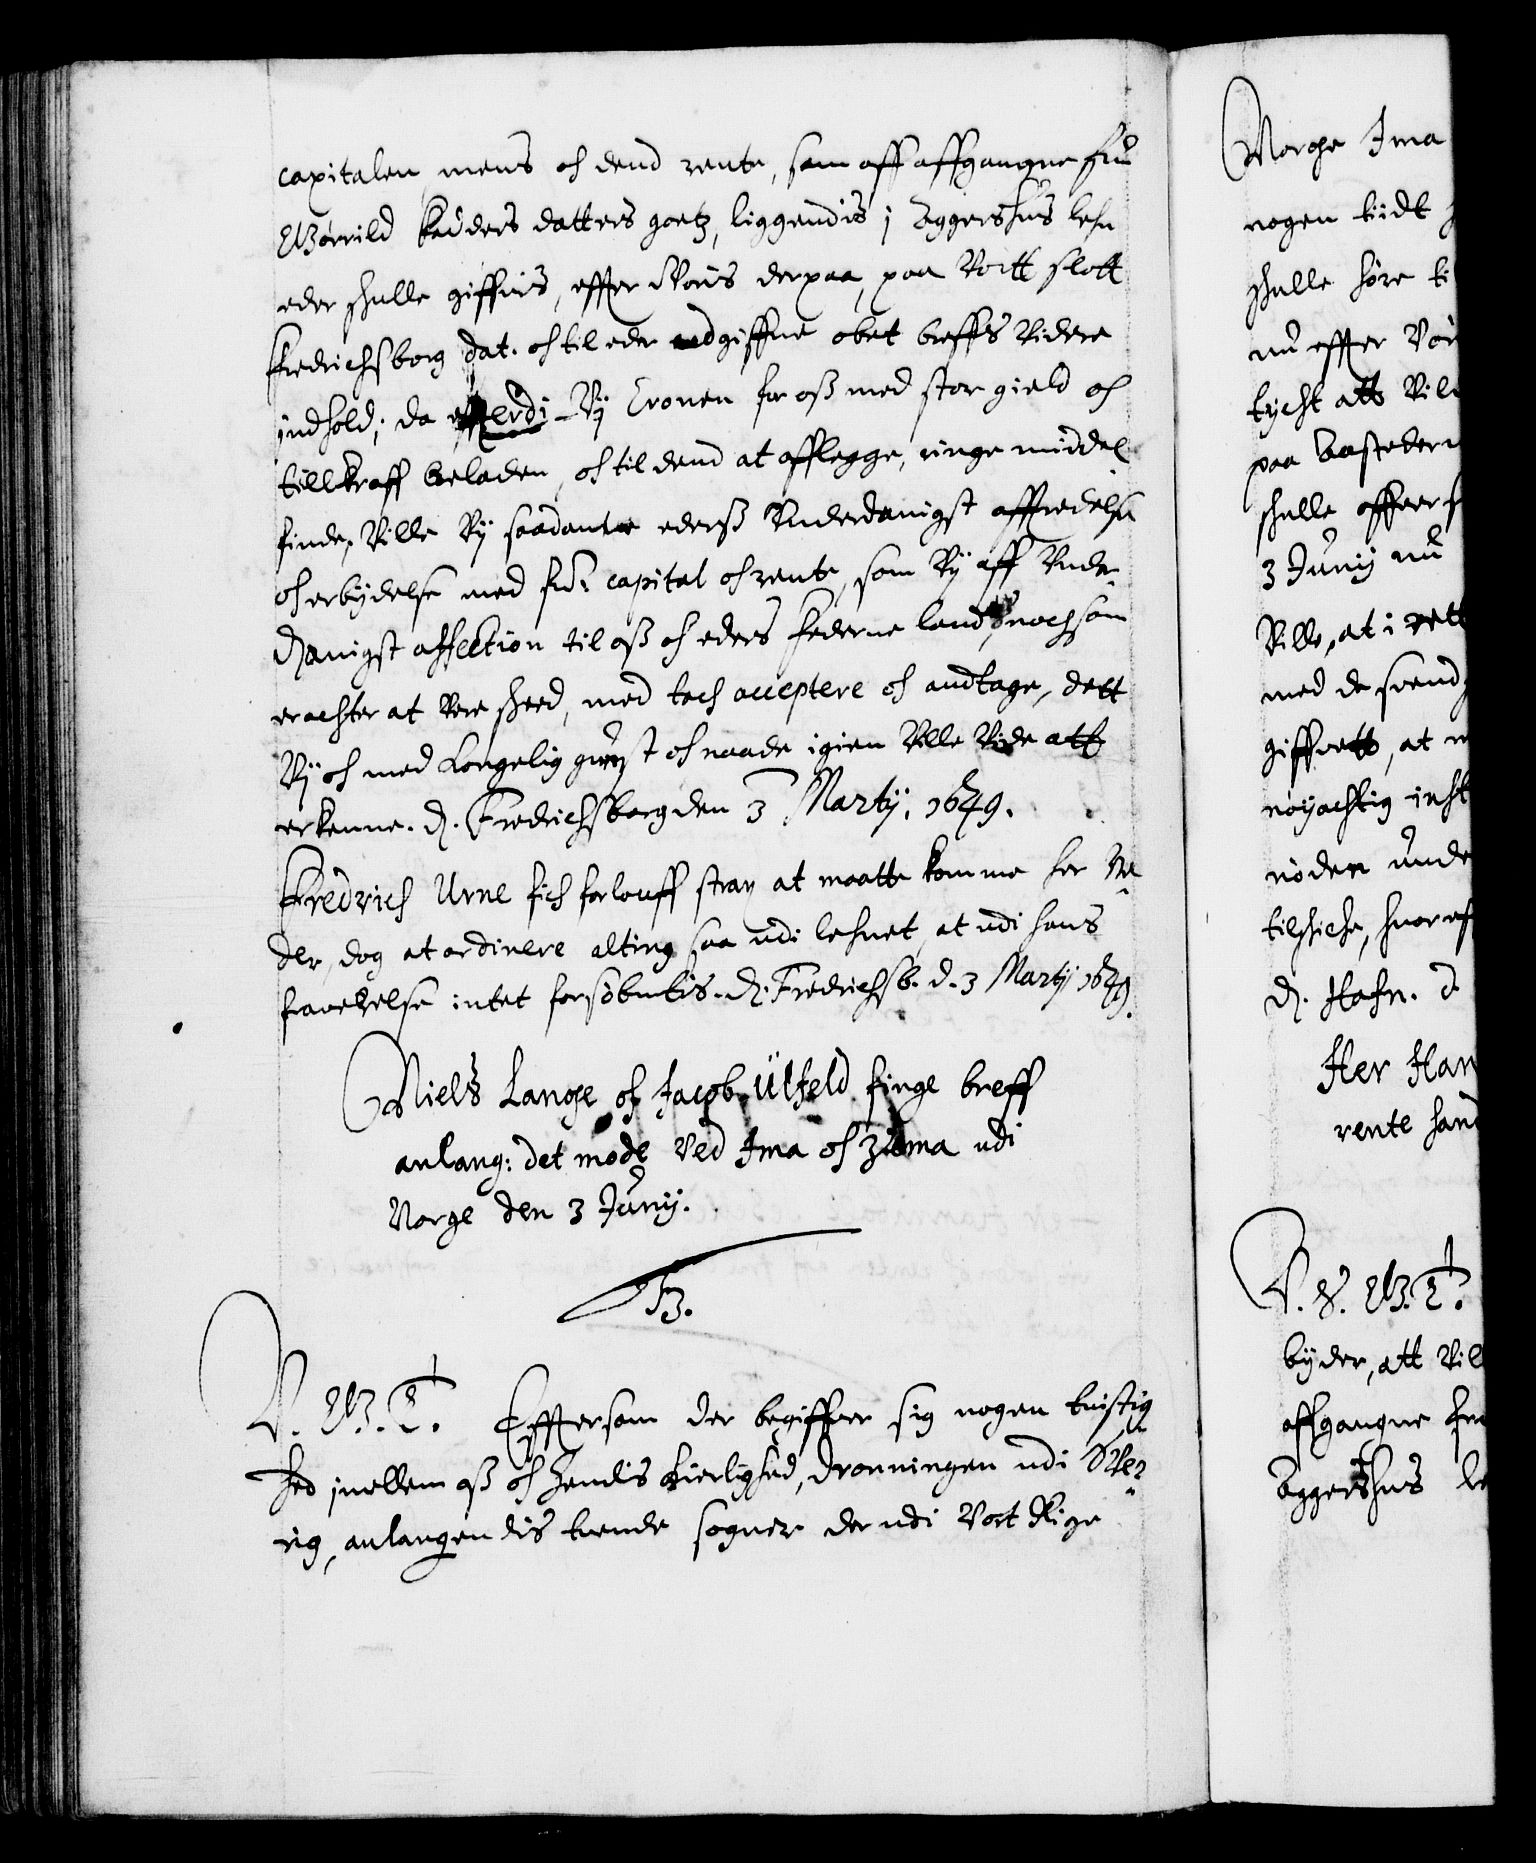 capitalen, mens och dend rente, som aff affgangne fru
Børrild Kadders datters goetz, liggendis i Aggershus lehn
eder skulle giffuis, effter Voris derpaa, paa Vortt slott
Fredrichsborg dat. och til eder udgiffne obet breffs Videre
indhold; da efterdi Vy Cronen for oss med stor gield och
tillkraff beladen, och til dend at afflegge, ringe middel
finde, Ville Vy saadant ederss Underdanigst
och erbydelse med capital och rente, som Vy aff Under
danigst affection til oss och eders federne land, nochsom
erachter at Vere skeed, med tack acceptere och andtage, dett
Vy och med Kongelig gunst och naade igien Ville Vide att
erkenne. D. Fredrichsborg den 3 Martij, 1649.
Fredrich Urne fich forlouff strax at maatte komme her Ne
der, dog at ordinere alting saa udi lehnet, at udi hans
fraverelse intet forsømmis. D. Fredrichsb. d. 3 Martij 1649.
Niels Lange och Jacob Ulfeld finge breff
anlang: det møde Ved Ima och Zerna udi
Norge den 3 Junij.
F3.
V. G. T. Efftersom der begiffuer sig nogen tuistig
hed imellem oss och hendis Kierlighed, dronningen udi Sver
rig, anlangendis tuende sogner der udi Vort Rige
Norge Ima
nogen tiidt
skulle høre ti
nu effter Vor
tycht att Vil
paa
skulle
3 Junij nu
Ville, at i rett
med de svend
giffuett, at
nøyachtig inst
nøden unde
tilskiche, huoref
D. Hafn. d.
Her Han
rente hand
V. S. G. T.
byder, att Vil
affgangne fru
Aggershus le